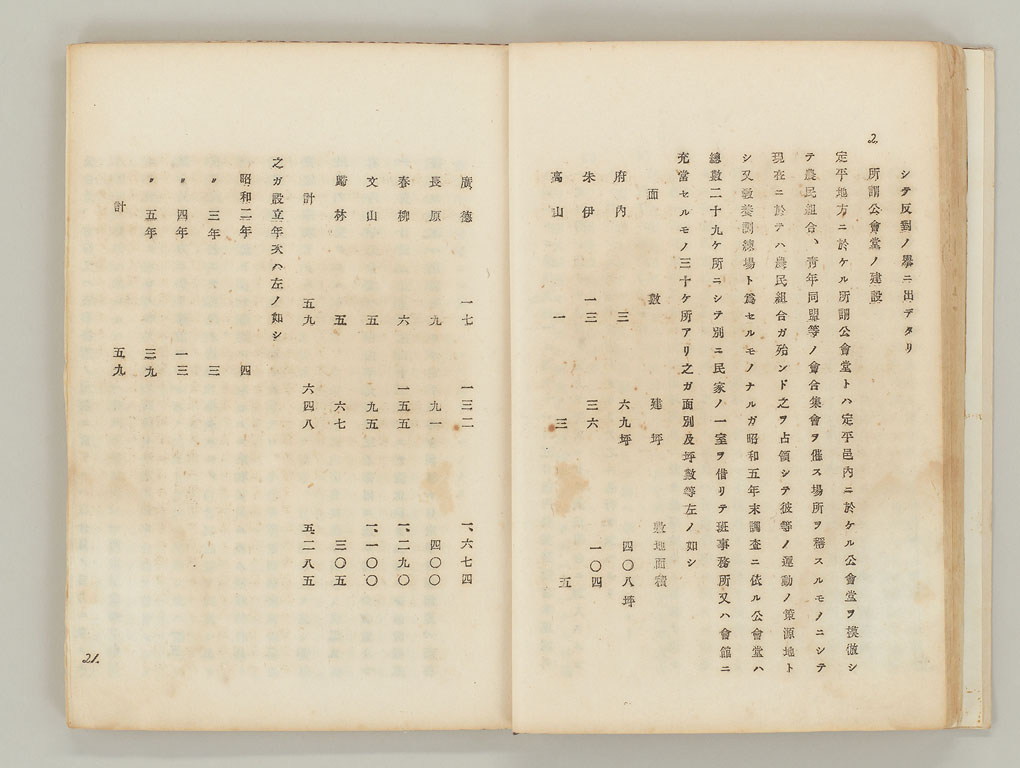 シテ反對ノ擧ニ出デタリ
2.
所謂公會堂ノ建設
定平地方ニ於ケル所謂公會堂トハ定平邑内ニ於ケル公會堂ヲ模倣シ
テ農民組合、青年同盟等ノ會合集會ヲ催ス場所ヲ稱スルモノニシテ
現在ニ於テハ農民組合ガ殆ンド之ヲ占領シテ彼等ノ運動ノ策源地ト
シ又敎養訓練場ト爲セルモノナルガ昭和五年末調査ニ依ル公會堂ハ
總數二十九ケ所ニシテ別ニ民家ノ一室ヲ借リテ班事務所又ハ會館ニ
充當セルモノ三十ケ所アリ之ガ面別及坪數等左ノ如シ
面 數 建坪 敷地面積
府内 三 六九坪 四〇八坪
朱伊 一三 三六 一〇四
高山 一 三 五
廣德 一七 一三二 一、六七四
長原 九 九一 四〇〇
春柳 六 一五五 一、二九〇
文山 五 九五 一、一〇〇
歸林 五 六七 三〇五
計 五九 六四八 五、二八五
之ガ設立年次ハ左ノ如シ
昭和二年 四
〃 三年 三
〃 四年 一三
〃 五年 三九
計 五九
21.